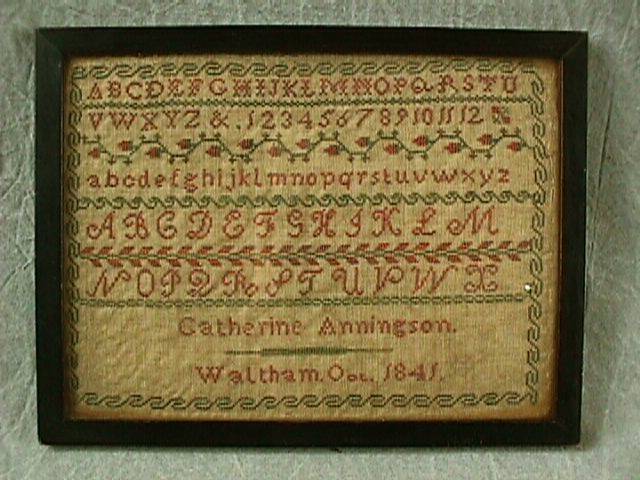 ABCDEFGHIJKLMNOPQRSTU
VWXYZ & . 1 2 3 4 5 6 7 8 9 10 11 12
abcdefghijklmnopqrstuvwxyz
A B C D E F G H I K L M
N O P Q R S T U V W X
Catherine Anningson.
Waltham. Oct. 1841.